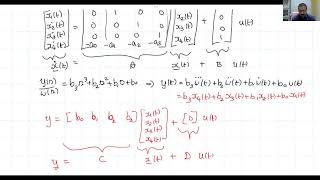 [ẋ₁(t) ẋ₂(t) ẋ₃(t) ẋ₄(t)] = [0 1 0 0; 0 0 1 0; 0 0 0 1; -a₀ -a₁ -a₂ -a₃] [x₁(t) x₂(t) x₃(t) x₄(t)] + [0 0 0 1] u(t)
ẋ(t) = A x(t) + B u(t)
y(s)/w(s) = b₃s³+b₂s²+b₁s+b₀ ⇒ y(t) = b₃ẅ̇(t) + b₂ẅ(t) + b₁ẇ(t) + b₀w(t)
= b₃x₄(t) + b₂x₃(t) + b₁x₂(t) + b₀x₁(t)
y = [b₀ b₁ b₂ b₃] [x₁(t) x₂(t) x₃(t) x₄(t)] + [0] u(t)
y = C x(t) + D u(t)